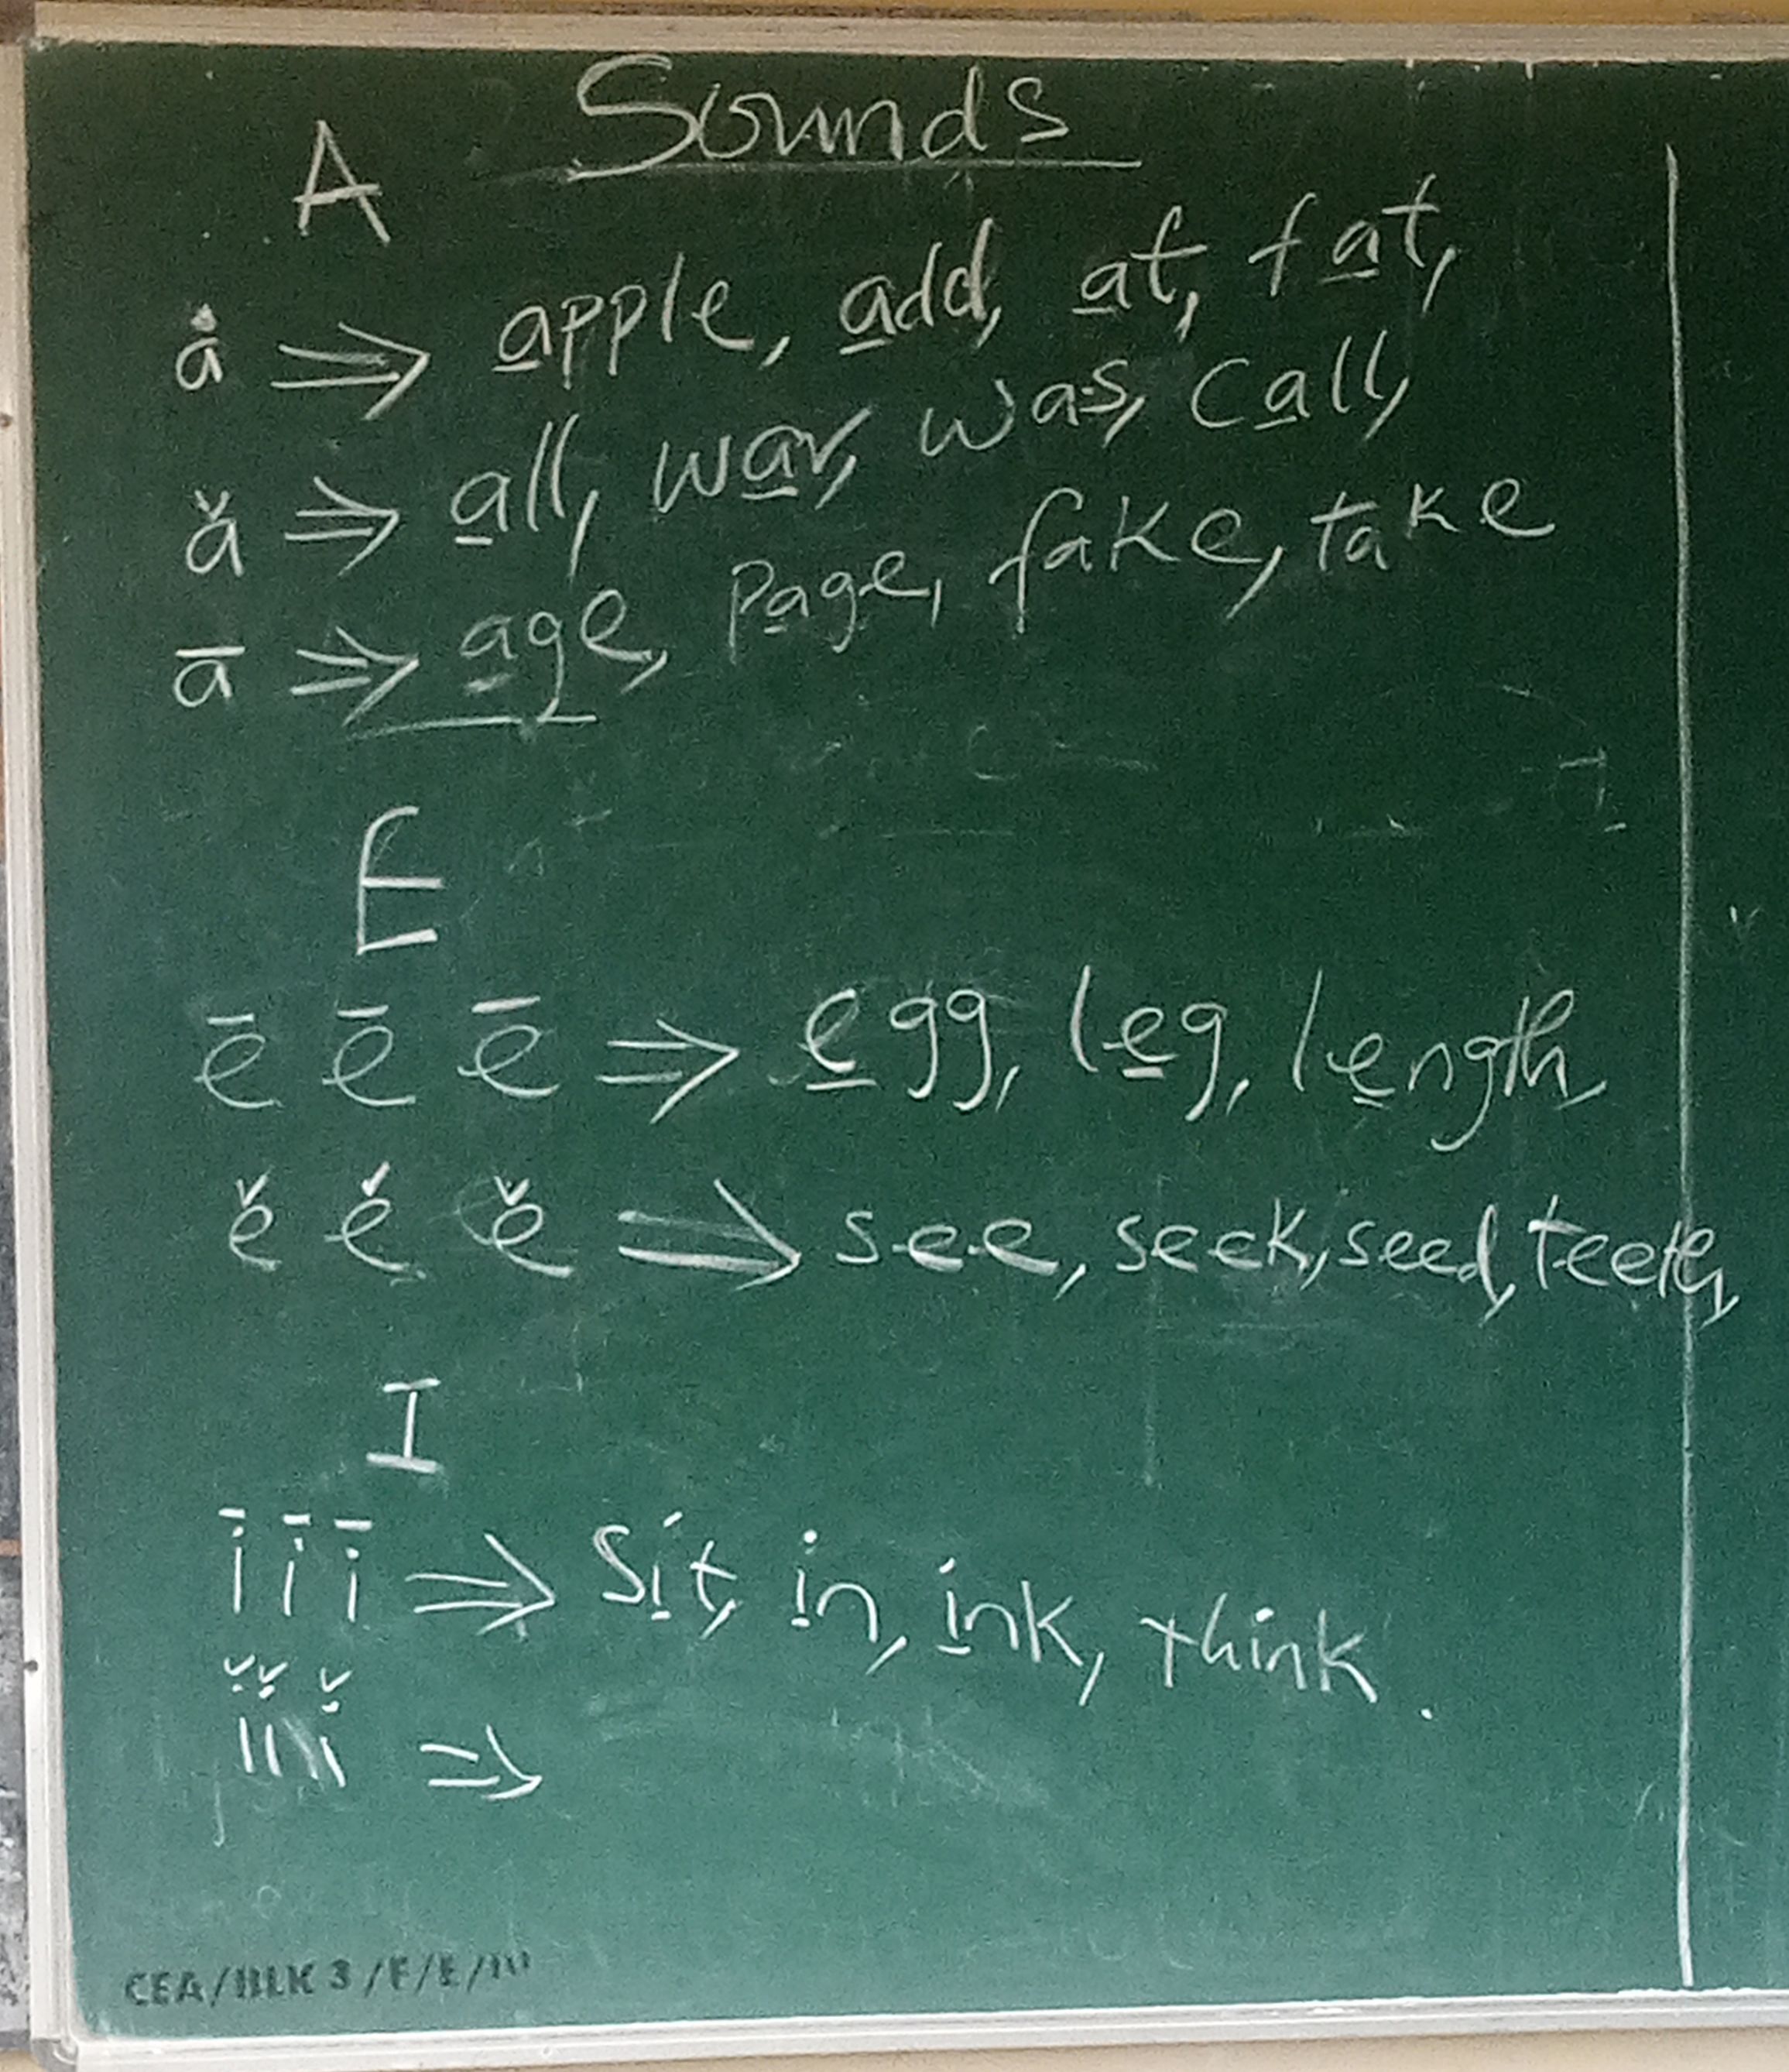 Sounds
A
å ⇒ apple, add, at, fat,
ǎ ⇒ all, war, was, call,
ā ⇒ age, page, fake, take
E
ē ē ē ⇒ egg, leg, length,
ě ě ě ⇒ see, seek, seed, teeth,
I
ī ī ī ⇒ Sit, in, ink, think.
ǐ ǐ ǐ ⇒
CEA/BLK 3/F/E/111